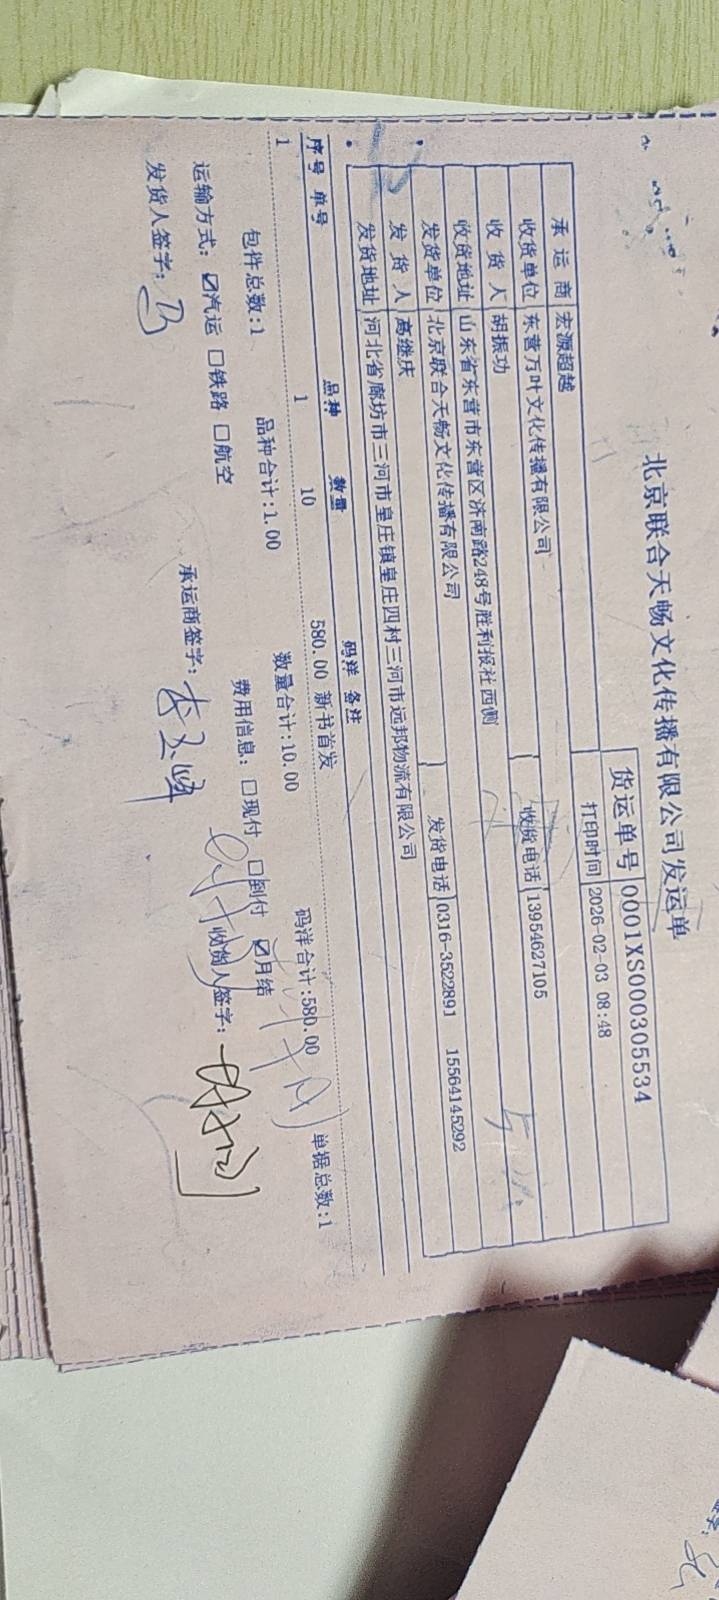 北京联合天畅文化传播有限公司发运单
货运单号 0001XS000305534
打印时间 2026-02-03 08:48
承运商 宏源超越
收货单位 东营万叶文化传播有限公司 收货电话 13954627105
收货人 胡振功
收货地址 山东省东营市东营区济南路248号胜利报社西侧
发货单位 北京联合天畅文化传播有限公司 发货电话 0316-3522891 15564145292
发货人 高继庆
发货地址 河北省廊坊市三河市皇庄镇皇庄四村三河市远邦物流有限公司
序号 单号 品种 数量 码洋 备注
1 1 10 580.00 新书首发
包件总数:1 品种合计:1.00 数量合计:10.00 码洋合计:580.00 单据总数:1
运输方式: ☑汽运 □铁路 □航空 费用信息: □现付 □到付 ☑月结
发货人签字: 承运商签字: 收货人签字: